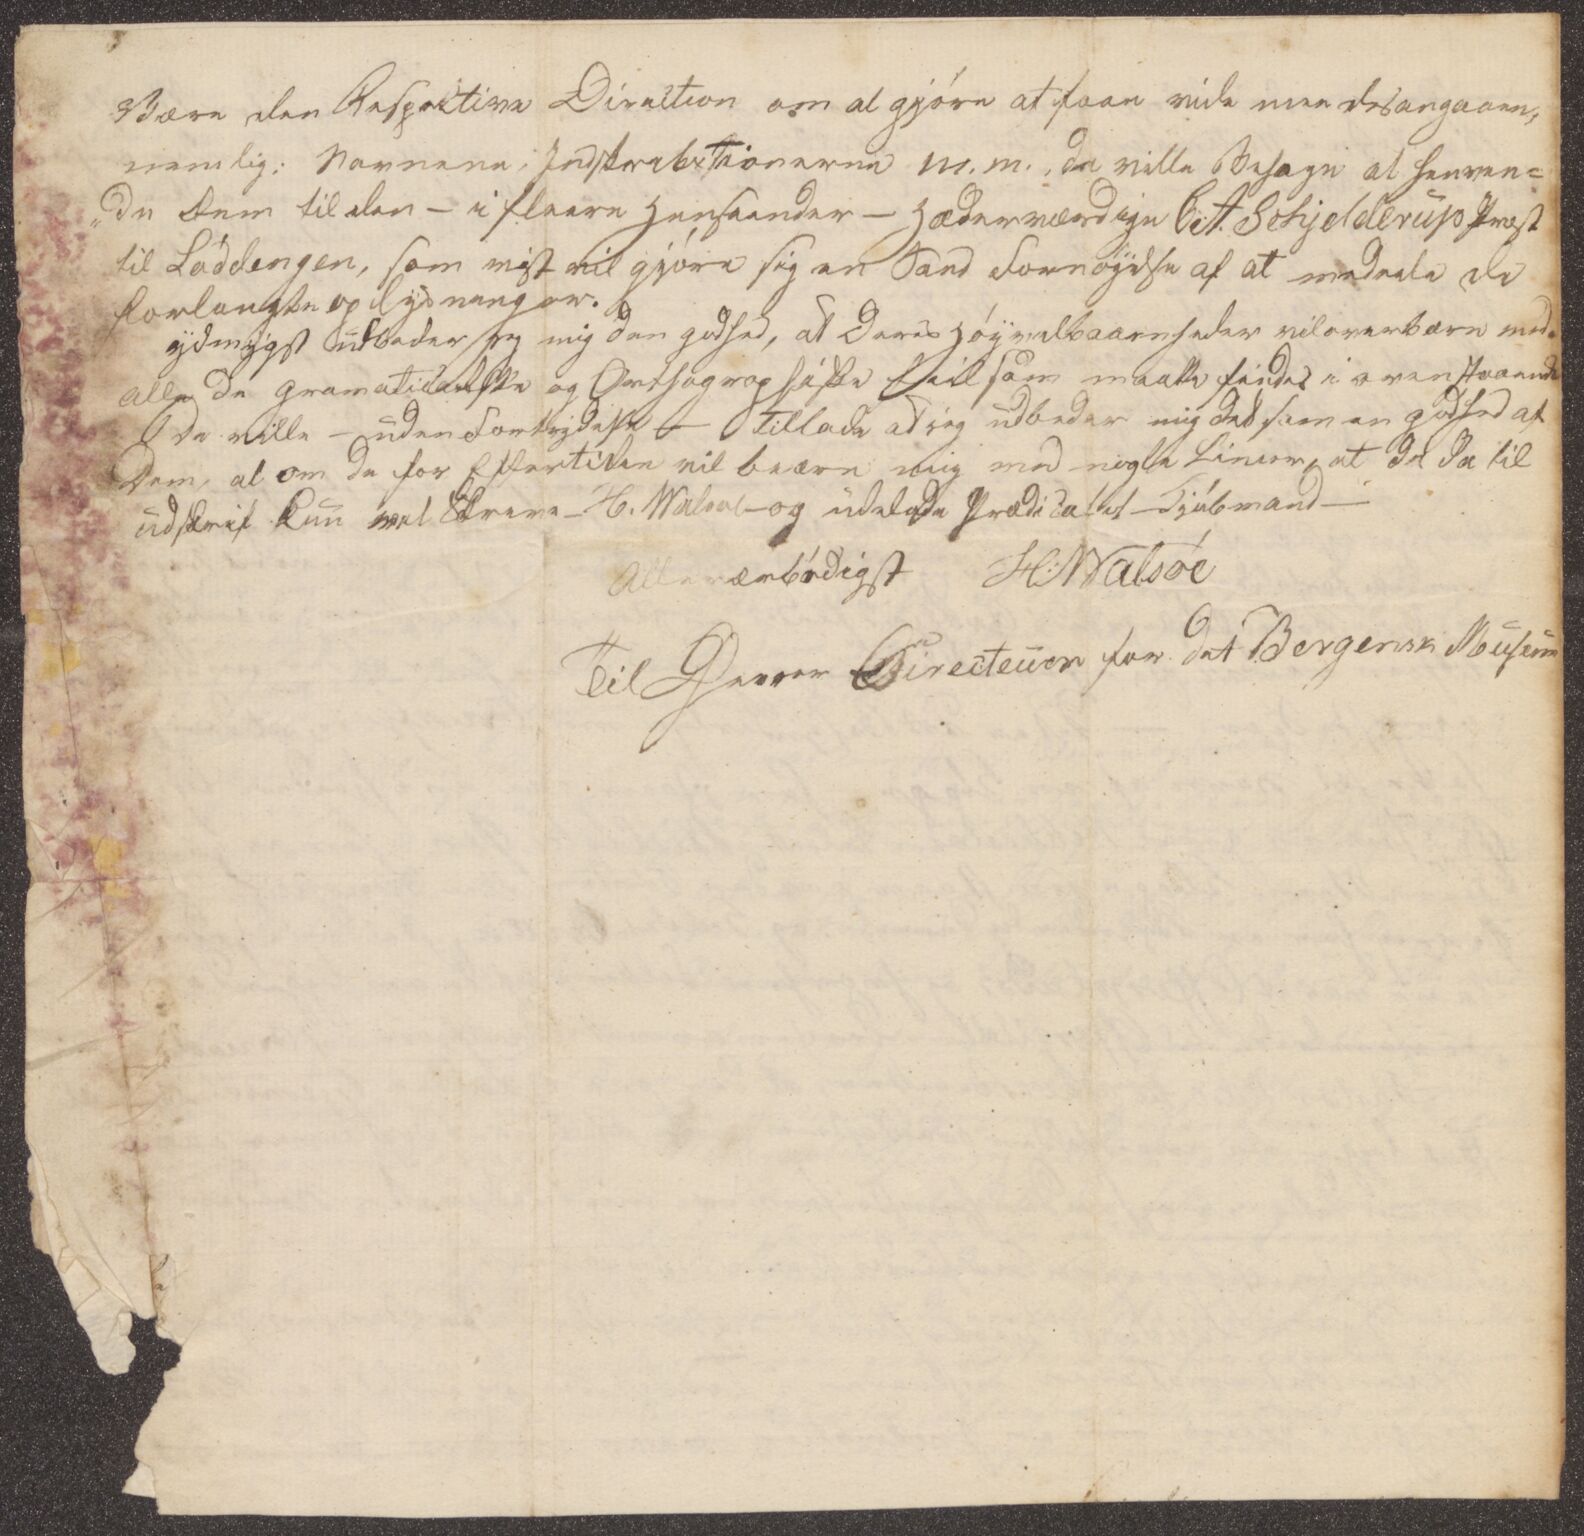 Være den Respective Direction om at gjøre at faae vide mere desangaaen,
nemlig: Navnene, Indskrebtionerne m.m., de ville Behage at henven=
"de Dem til den – i fleere Henseender – Hæderværdige C. A. Schjelderup Prost
til Løddengen, som vist vil gjøre sig en Sand Fornøyelse af at meddele de
forlangte oplysninger.
ydmygst udbeder jeg mig den godhed, at Deres Høyvelbaarenheder vil overbære med
alle de gramaticalske og Orthographiske feil som maatte findes i ovenstaaende
De ville – uden Fortrydelse – Tillade at jeg udbeder mig det som en godhed af
Dem, at om de for Eftertiden vil beære mig med nogle Linier, at De da til
udskrift kun vil Skreve – H. Walsøe – og udelade Prædicatet – Kjøbmand –
Allerærbødigst H: Walsøe
Til Herrer Directeurer for det Bergenske Museum